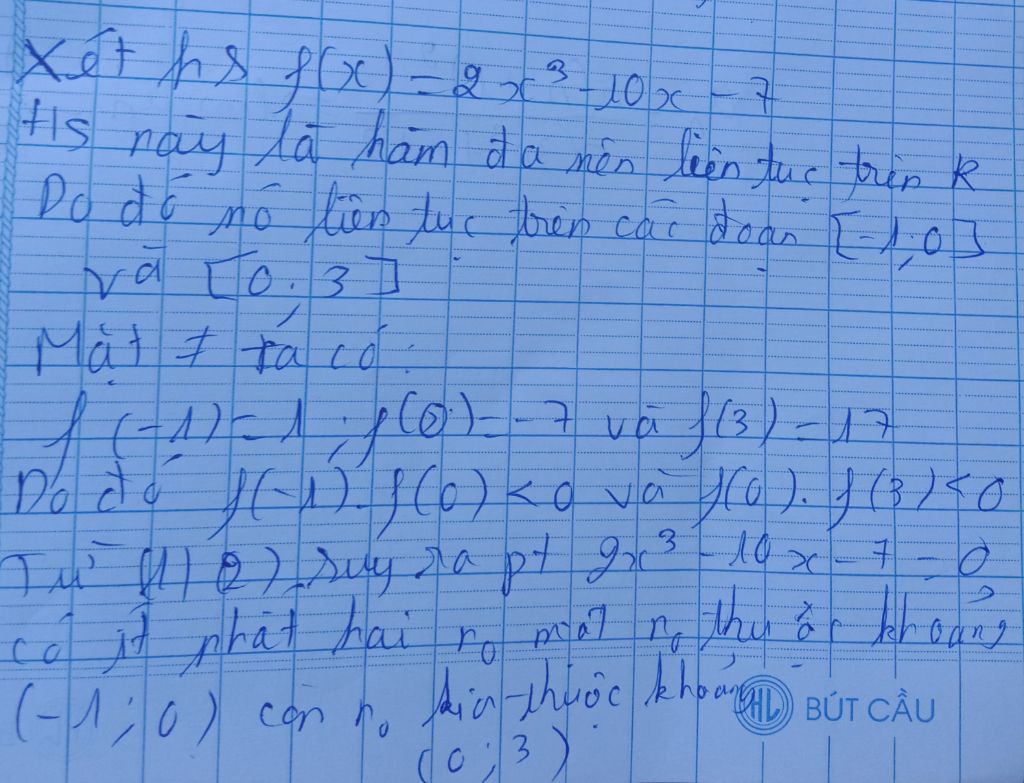 Xét hs f(x) = 2x³ - 10x - 7
Hs này là hàm đa nên liên tục trên R
Do đó nó liên tục trên các đoạn [-1;0]
và [0;3]
Mặt ≠ ta có:
f(-1) = 1; f(0) = -7 và f(3) = 17
Do đó f(-1). f(0) < 0 và f(0). f(3) < 0
Từ (1)(2) suy ra pt 2x³ - 10x - 7 = 0
có ít nhất hai n₀ một n₀ thuộc khoảng
(-1;0) còn n₀ kia thuộc khoảng
(0;3)
HL BÚT CẦU